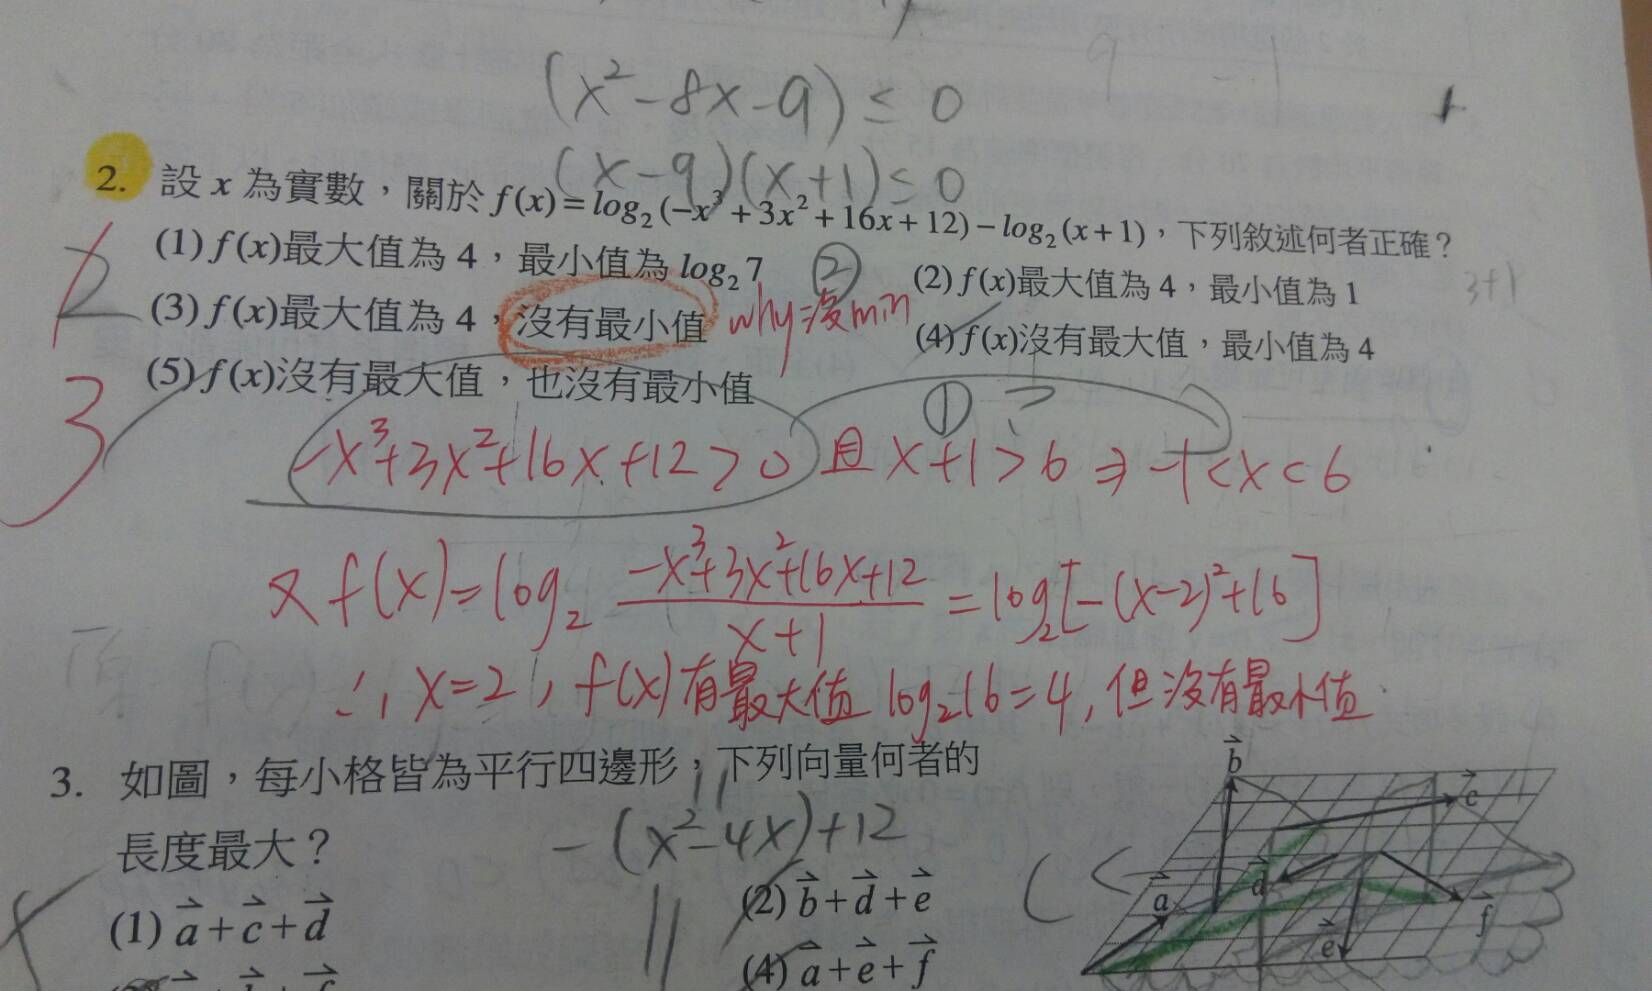 (x²-8x-9) ≤ 0
(x-9)(x+1) ≤ 0
2. 設 x 為實數，關於 f(x)=log₂(-x³+3x²+16x+12)-log₂(x+1)，下列敘述何者正確？
(1) f(x)最大值為 4，最小值為 log₂7 ② (2) f(x)最大值為 4，最小值為 1
3+1
2
(3) f(x)最大值為 4，沒有最小值 why 沒 min (4) f(x)沒有最大值，最小值為 4
(5) f(x)沒有最大值，也沒有最小值
3
① ?
-x³+3x²+16x+12>0 且 x+1>6 ⇒ -1<x<6
又 f(x)=log₂ (-x³+3x²+16x+12)/(x+1) = log₂[-(x-2)²+16]
∴, x=2, f(x)有最大值 log₂16=4, 但沒有最小值.
3. 如圖，每小格皆為平行四邊形，下列向量何者的
長度最大？
-(x²-4x)+12
(1) a⃗+c⃗+d⃗ (2) b⃗+d⃗+e⃗
(4) a⃗+e⃗+f⃗
b⃗
c⃗
d⃗
a⃗
f⃗
e⃗